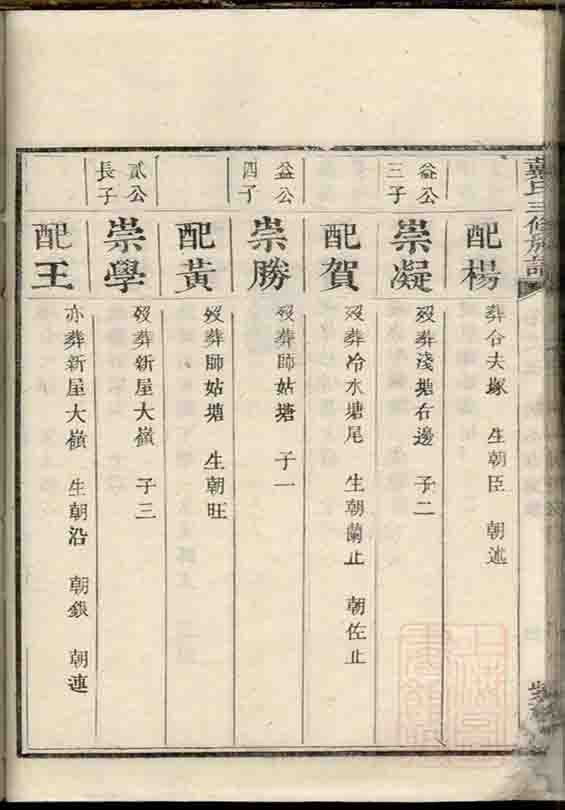 氏三修族譜
配楊
葬合夫塚 生朝臣 朝述
益公三子
崇凝
歿葬淺塘右邊 子二
配賀
歿葬冷水塘尾 生朝蘭止 朝佐止
益公四子
崇勝
歿葬師姑塘 子一
配黃
歿葬師姑塘 生朝旺
貳公長子
崇學
歿葬新屋大嶺 子三
配王
亦葬新屋大嶺 生朝沿 朝鎖 朝連